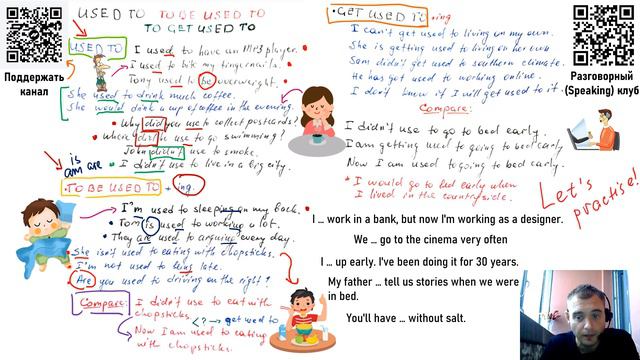 USED TO TO BE USED TO
TO GET USED TO
Поддержать
канал
USED TO
I used to have an MP3 player.
I used to bite my fingernails.
Tony used to be overweight.
She used to drink much coffee.
She would drink a cup of coffee in the evening.
Why did you use to collect postcards?
Where did he use to go swimming?
John didn't use to smoke.
I didn't use to live in a big city.
is
am are
TO BE USED TO + ing.
I'm used to sleeping on my back.
Tom is used to working a lot.
They are used to arguing every day.
She isn't used to eating with chopsticks.
I'm not used to being late.
Are you used to driving on the right?
Compare:
I didn't use to eat with
chopsticks.
<?> get used to
Now I am used to eating
with chopsticks.
GET USED TO +ing
I can't get used to living on my own.
She is getting used to living on her own
Sam didn't get used to southern climate.
He has got used to working online.
I don't know if I will get used to it.
Compare:
I didn't use to go to bed early.
I am getting used to going to bed early
Now I am used to going to bed early.
* I would go to bed early when
I lived in the countryside.
Разговорный
(Speaking) клуб
Let's
practise!
I ... work in a bank, but now I'm working as a designer.
We ... go to the cinema very often
I ... up early. I've been doing it for 30 years.
My father ... tell us stories when we were
in bed.
You'll have ... without salt.